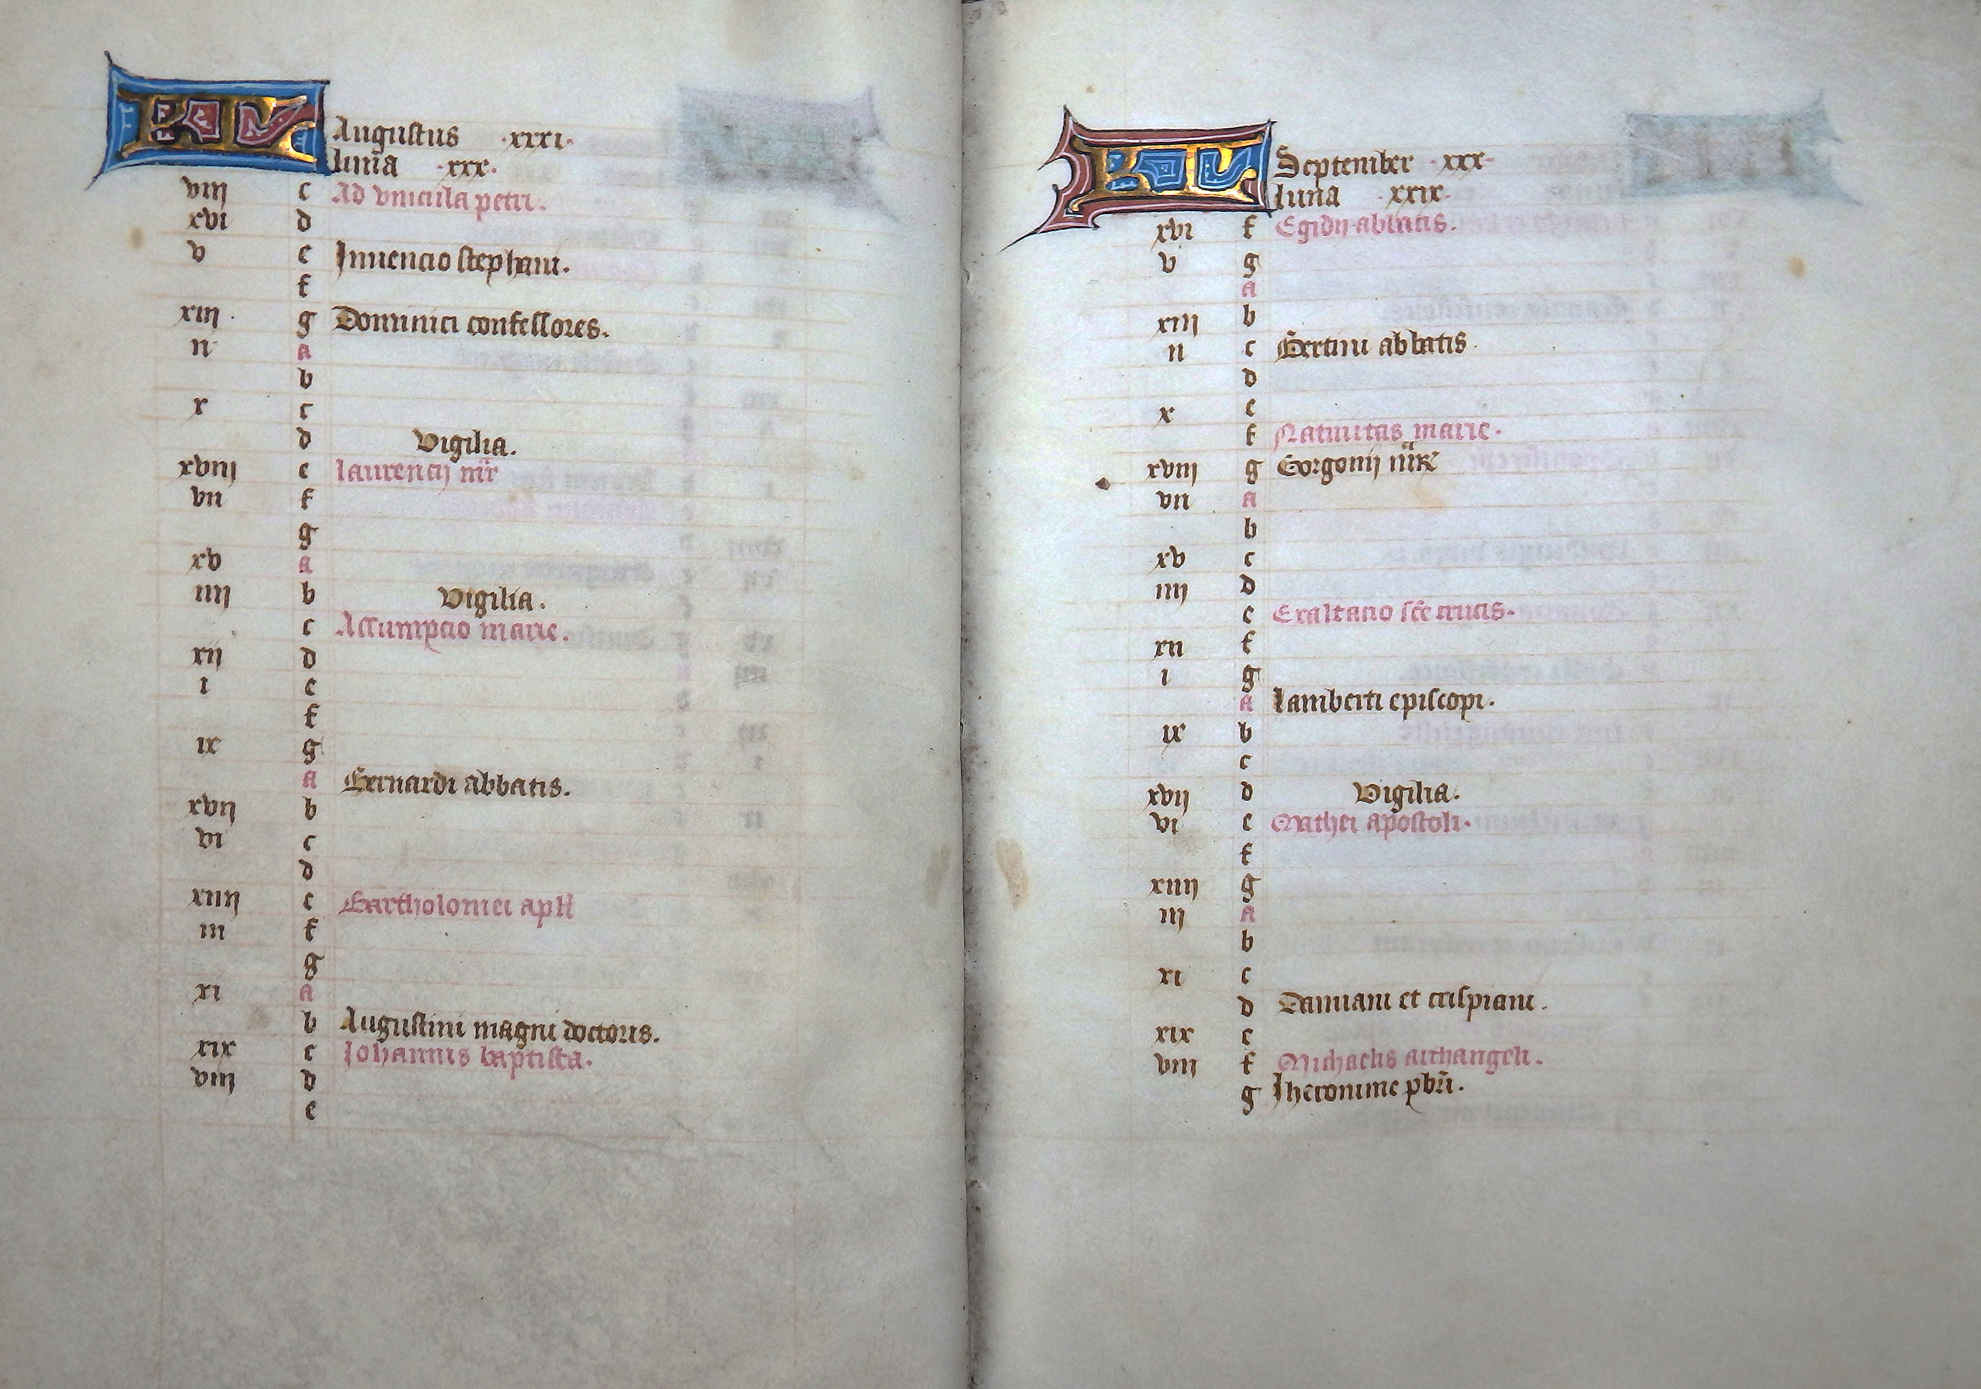 KL Augustus ·xxxi·
luna ·xxx·
viij c Ad vincula petri.
xvi d
v e Inuencio stephani.
f
xiij. g Dominici confessores.
ij a
b
x c
d Vigilia.
xviij e laurencij mr
vij f
g
xv a
iiij b Vigilia.
c Assumpcio marie.
xij d
i e
f
ix g
a Bernardi abbatis.
xvij b
vi c
d
xiiij e Bartholomei apli
iij f
g
xi a
b Augustini magni doctoris.
xix c Johannis baptista.
viij d
e
KL September ·xxx·
luna ·xxix·
xvi f Egidij abbatis.
v g
a
xiij b
ij c Bertini abbatis
d
x e
f Natiuitas marie.
xviij g Gorgonij mr
vij a
b
xv c
iiij d
e Exaltacio sce crucis.
xij f
i g
a lamberti episcopi.
ix b
c
xvij d Vigilia.
vi e Mathei apostoli.
f
xiiij g
iij a
b
xi c
d Damiani et crispiani.
xix e
viij f Michaelis archangeli.
g Jheronime pbri.